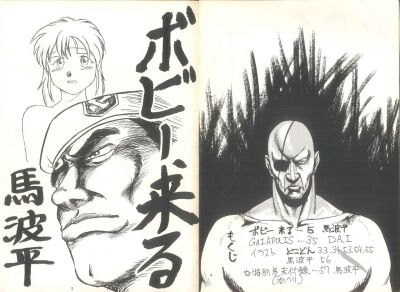 ボビー、来る
馬波平
もくじ
ボビー 来る…5 馬波平
GAIAPOLIS…35 DAI
イラスト とことん 33.34.53.54.55
馬波平 56
特別巻末付録…57 馬波平